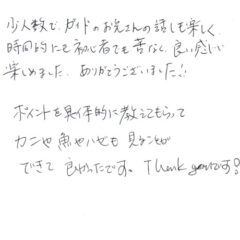 少人数で、ガイドのお兄さんの話しも楽しく
時間的にも初心者でも苦なく、良い感じ
楽しめました。ありがとうございました!
ポイントを具体的に教えてもらって
カニや魚やハゼも見ることが
できて良かったです。Thank youです!